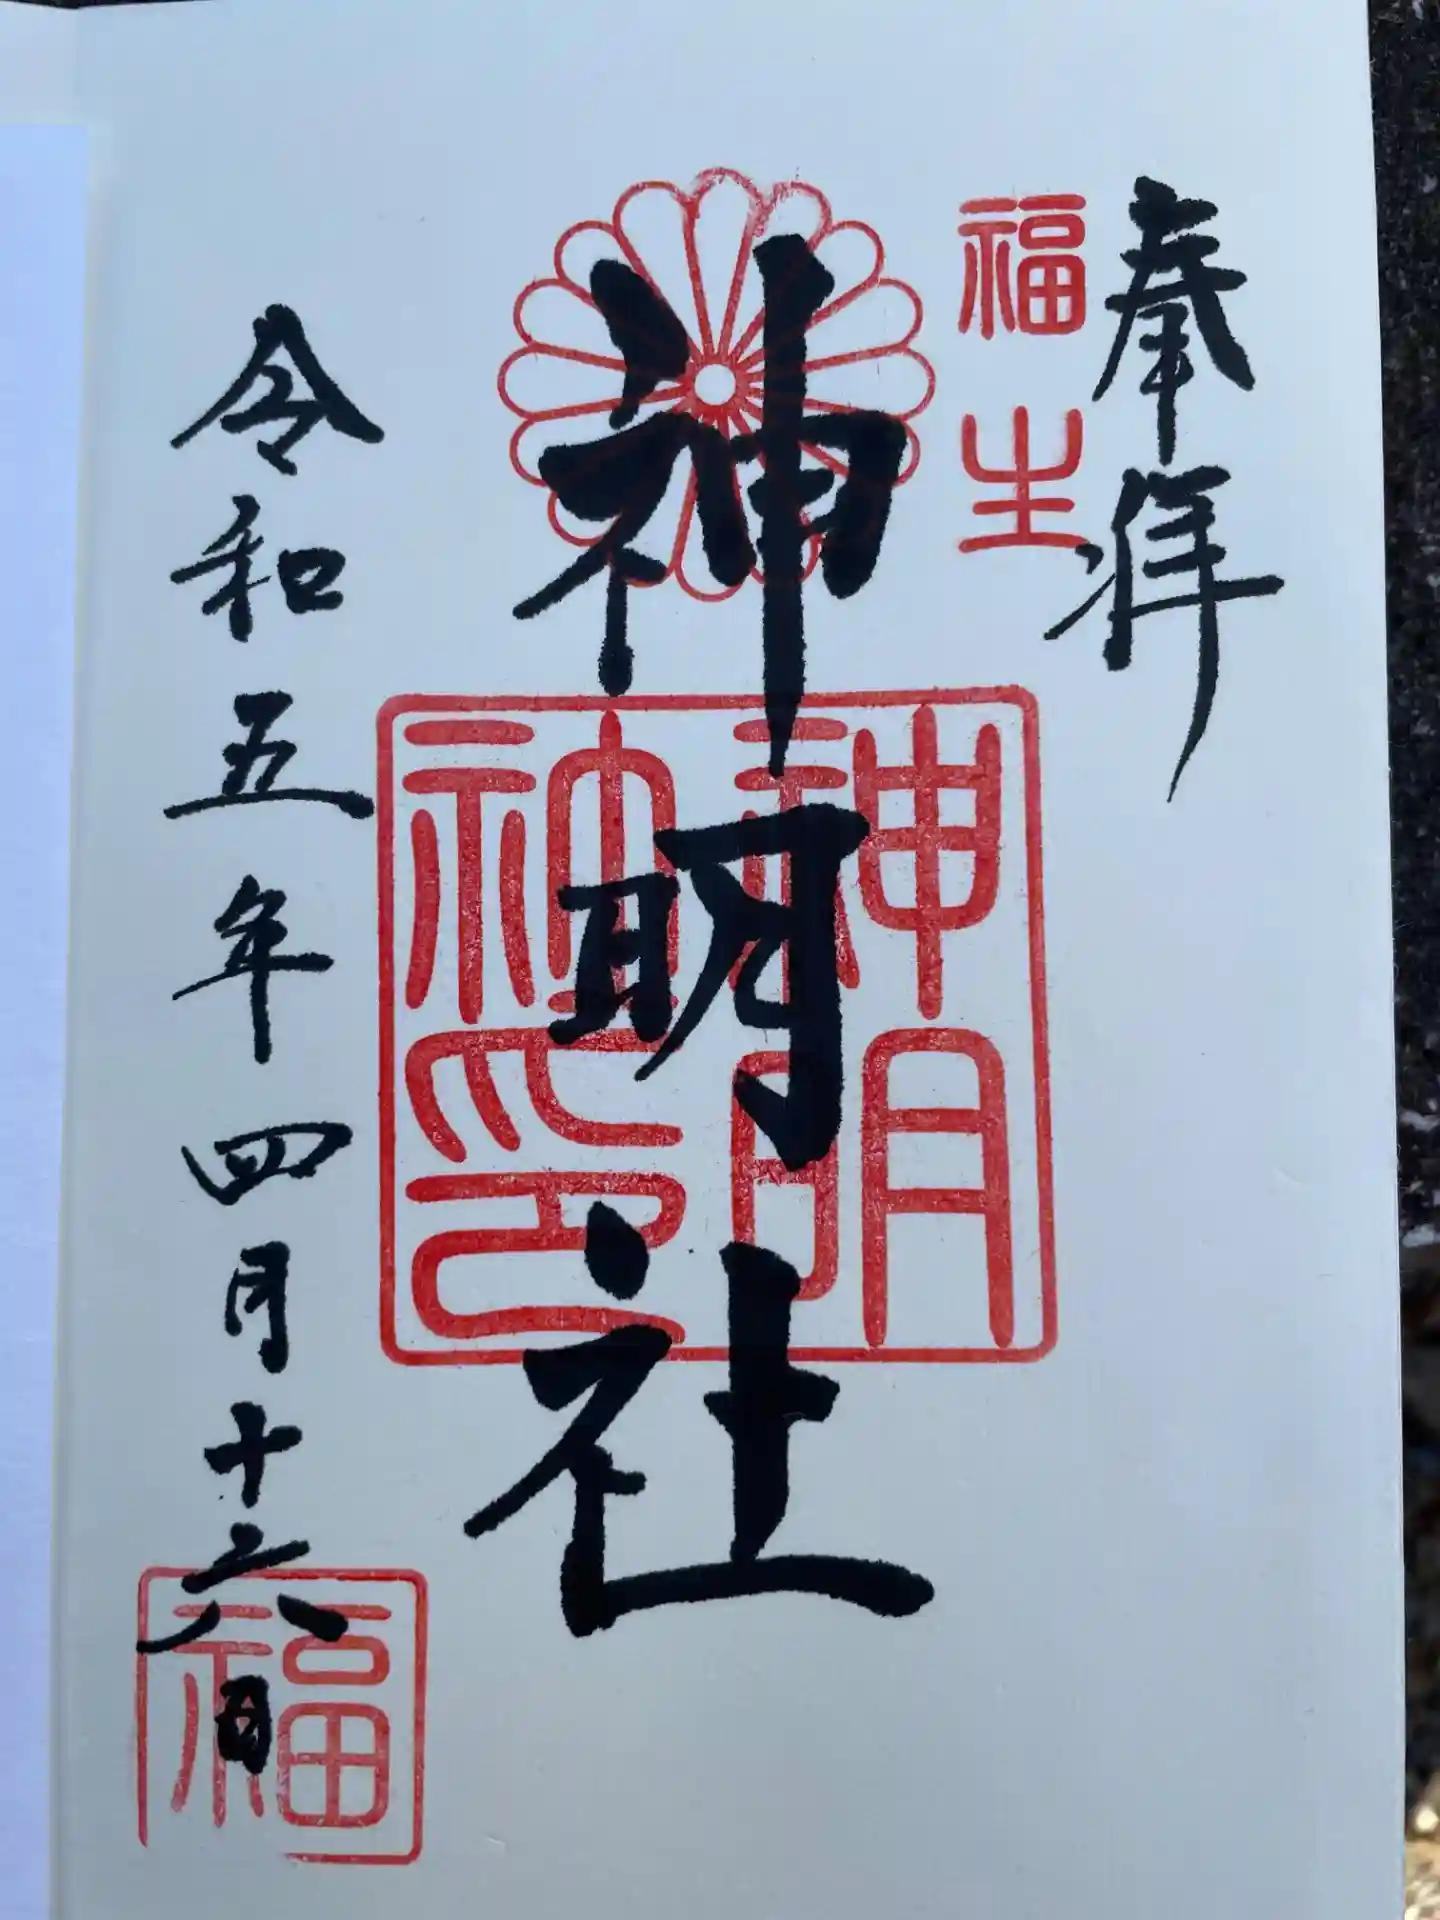 奉拝
福生
神明社
神明社印
令和五年四月十六日
福